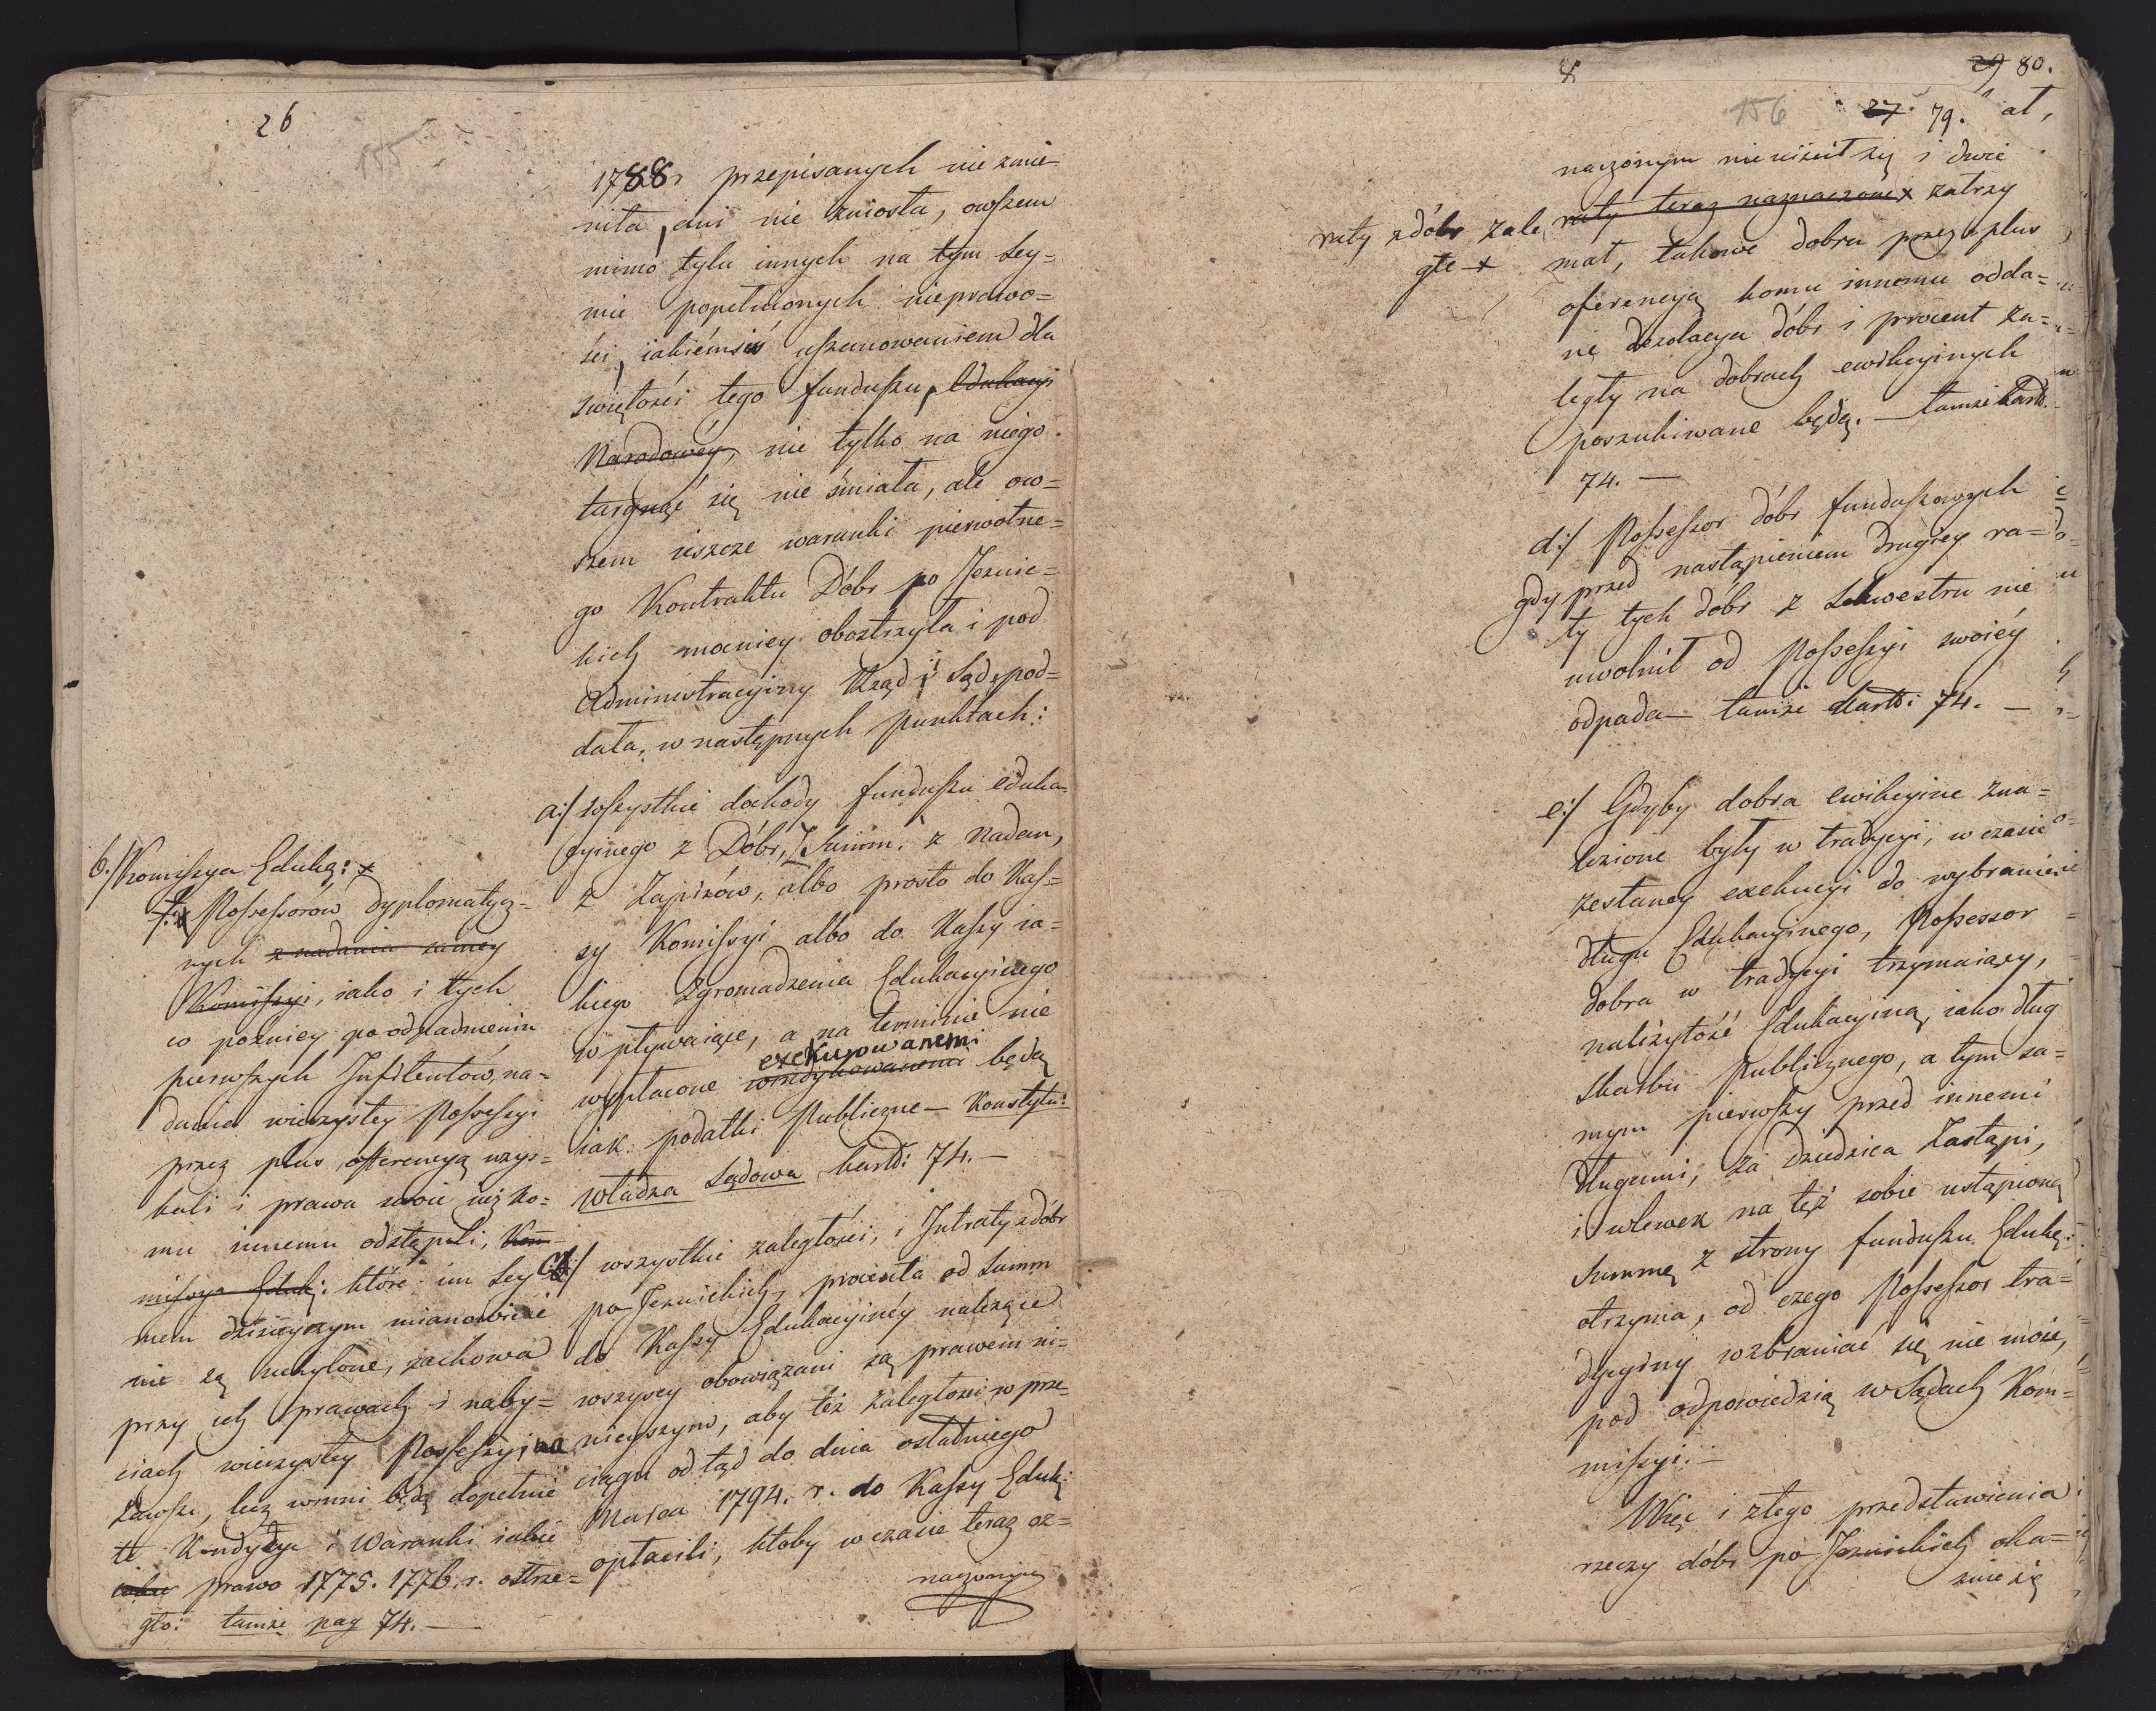 26
155
1788 przepisanych nie zmie-
niła, ani nie zniosła, owszem
mimo tylu innych na tym Sey=
mie popełnionych nieprawo=
ści, iakiémsiś uszanowaniem dla
świętości tego funduszu, Edukacyi
Narodowéy, nie tylko na niego
targnąć się nie śmiała, ale ow=
szem ieszcze warunki pierwotne=
go Kontraktu Dóbr po Jezuic=
kich mocniey obostrzyła i pod
Administracyiny Rząd i Sąd pod=
dała, w następnych punktach:
a:/ wszystkie dochody funduszu eduka=
cyinego z Dóbr, Summ: z nadan,
z Zapisów, albo prosto do Kas=
sy Komissyi albo do Kassy ia=
kiego zgromadzenia Edukacyinego
wpływaiące, a na terminie nie
exekwowanemi
wypłacone windykowanemi będą
iak podatki Publiczne — Konstytu:
władza Sądowa kard: 74. —
c:/ wszystkie zaległości, i Intraty z dóbr
po Jezuickich, procenta od Summ
do Kassy Edukacyinéy należące
wszyscy obowiązani są prawem ni=
nieyszym, aby też zaległości w prze=
ciągu od tąd do dnia ostatniego
Marca 1794. r. do Kassy Eduk:
opłacili, ktoby w czasie teraz oz=
naczonym
b:/ Komissya Eduka: x
x Possessorów dyplomatycz=
nych z nadania samey
Komissyi, iako i tych
co pozniey po odpadnieniu
pierwszych Insilentów, na=
dania wieczystey Possessyi
przez plus offerencyą uzys=
kali i prawa swoie niko=
mu innemu odstąpili, Kom=
missya Eduk: które im Sey=
mem dzisieyszym mianowicie
nie są uchylone, zachowa
przy ich prawach i naby=
ciach wieczystey Possessyi na
zawsze, lecz winni będą dopełnić
te Kondycye i Waranki iakie
iakie prawo 1775. 1776. r. ostrze=
gło: tamże pag 74. —
8
29 80.
156
27. 79.
at,
naczonym nie uiścił się i dwie
raty teraz naznaczone x zatrzy
raty z dóbr zale
głe x
mał, takowe dobra przez plus
oferencyą komu innemu odda=
ne dezolacya dóbr i procent za=
legły na dobrach ewikcyinych
poszukiwane będą. — tamże kard.
74. —
d:/ Possessor dóbr funduszowych
gdy przed nastąpieniem drugiey ra=
ty tych dóbr z Sekwestru nie
uwolnił od Possessyi swoiéy
odpada — tamże kard: 74. —
e:/ Gdyby dobra ewikcyine zna=
lezione były w tradycyi, w czasie
zesłaney exekucyi do wybrania
długu Edukacyinego, Possessor
dobra w tradycyi trzymaiący,
należytość Edukacyiną, iako dług
Skarbu Publicznego, a tym sa=
mym pierwszy przed innemi
długami, za dziedzica Zastąpi,
i wlewek na też sobie ustąpioną
Summę z strony funduszu Eduka:
otrzyma, od czego Possessor tra=
dycyiny wzbraniać się nie może,
pod odpowiedzią w Sądach Kom=
missyi. —
Więc i z tego przedstawienia
rzeczy dóbr po Jezuickich oka=
zuie się